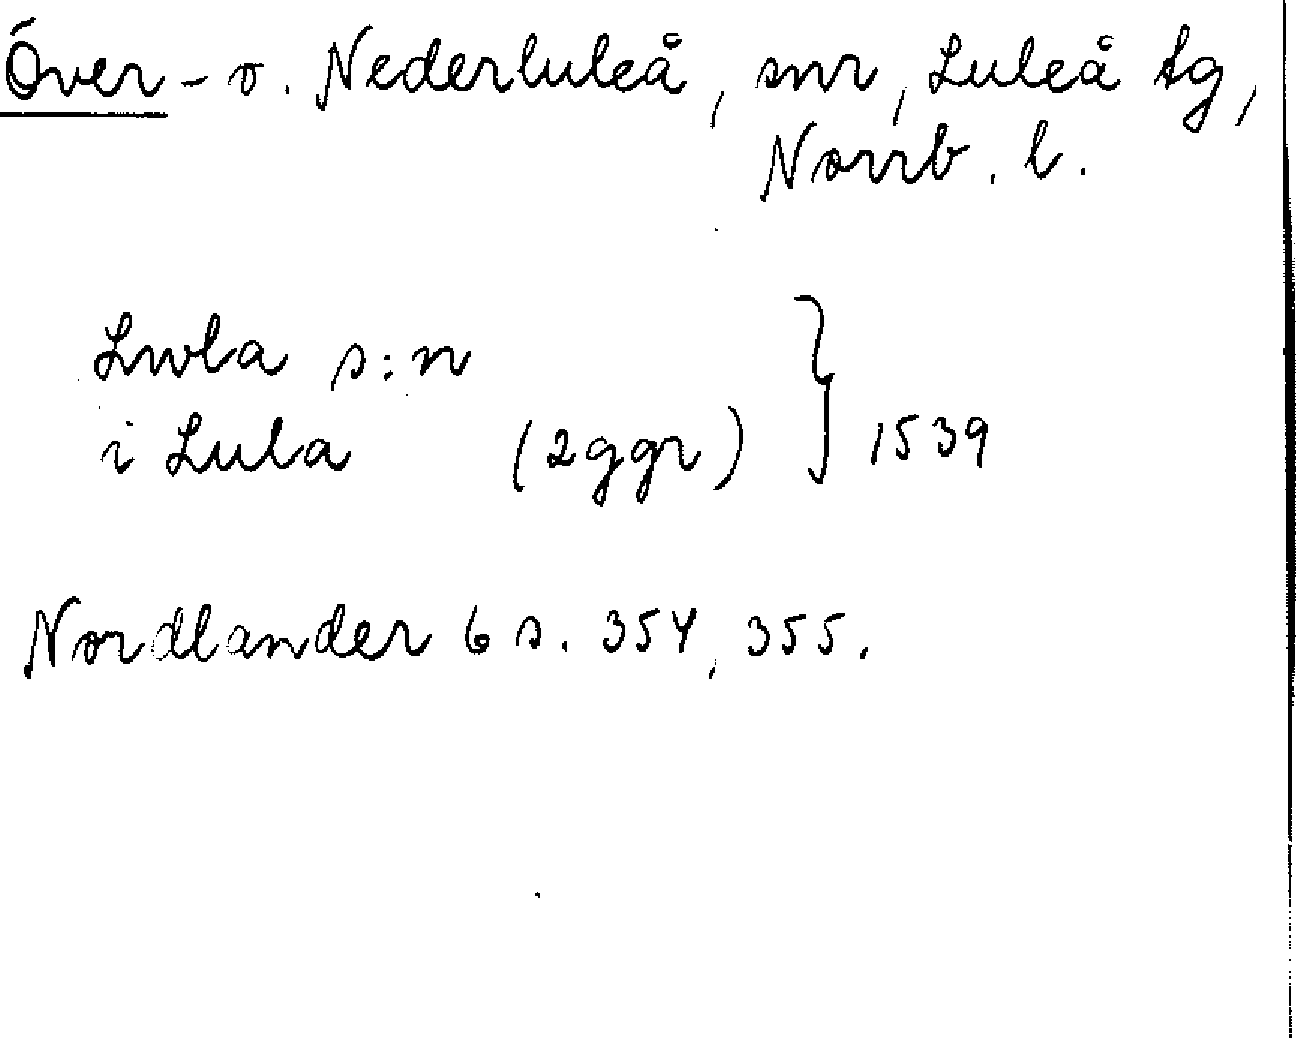 Över- o. Nederluleå, snr, Luleå tg,
Norrb. l.
Lwla s:n
i Lula (2ggr) } 1539
Nordlander 6 s. 354, 355.